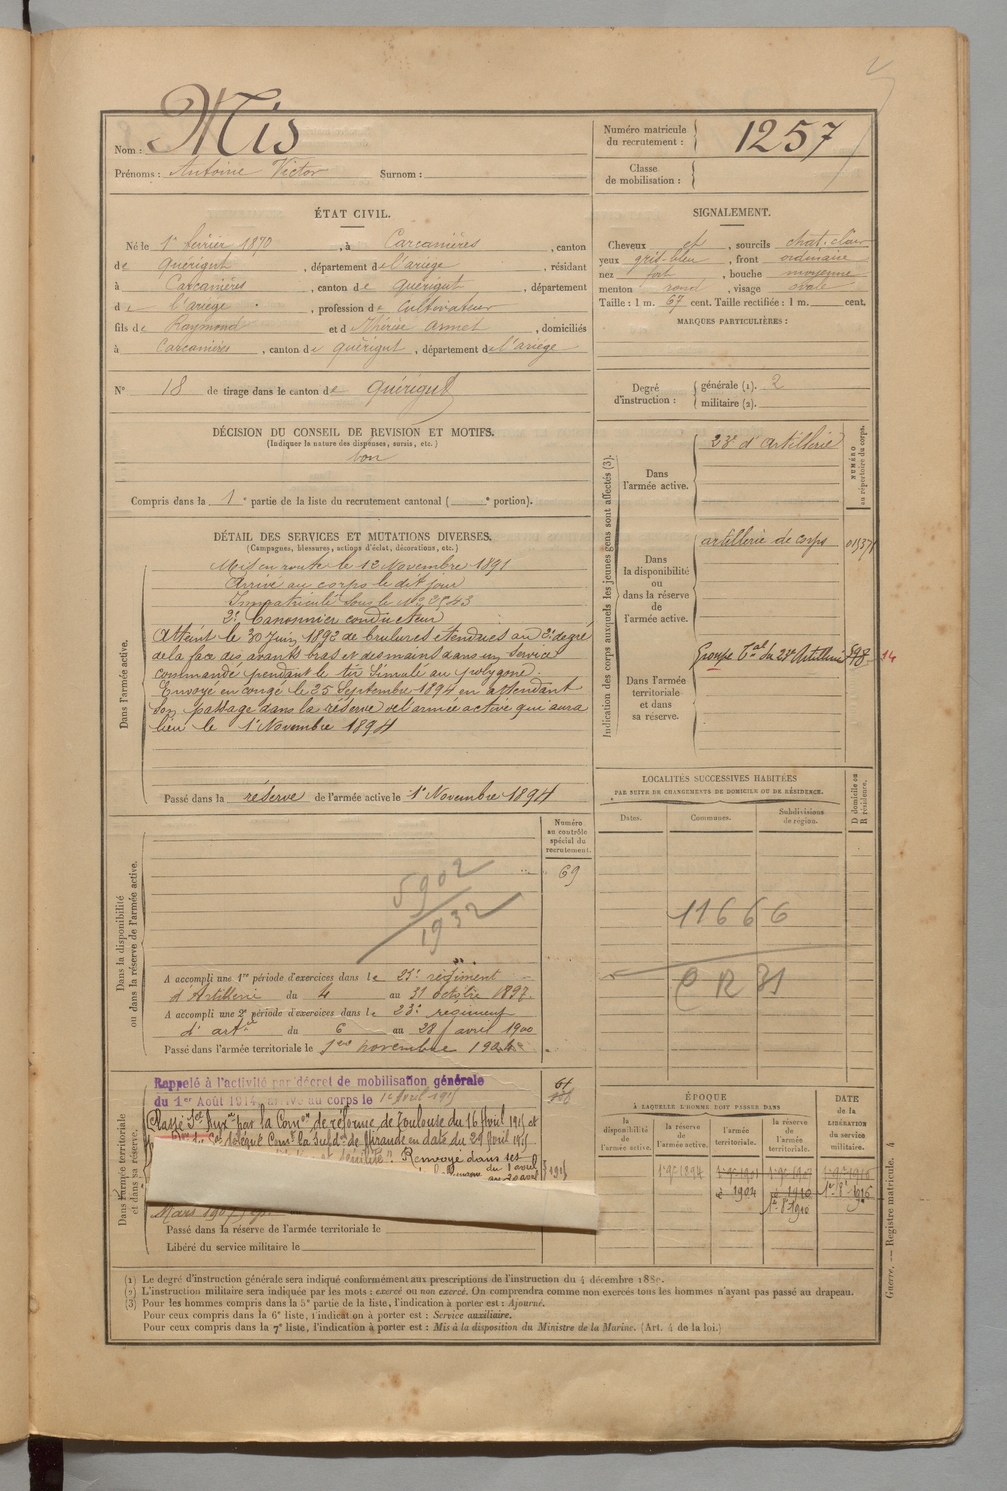 Nom : Mis
Prénoms : Antoine Victor Surnom :
Numéro matricule du recrutement : 1257
Classe de mobilisation :
ÉTAT CIVIL.
Né le 1er février 1870, à Carcanières, canton
de Quérigut, département de l'ariège, résidant
à Carcanières, canton de Quérigut, département
de l'ariège, profession de Cultivateur
fils de Raymond et de Thérèse, domiciliés
à Carcanières, canton de Quérigut, département de l'ariège
No 18 de tirage dans le canton de Quérigut
DÉCISION DU CONSEIL DE REVISION ET MOTIFS.
(Indiquer la nature des dispenses, sursis, etc.)
bon
Compris dans la 1e partie de la liste du recrutement cantonal ( e portion).
SIGNALEMENT.
Cheveux et, sourcils chat. clair
yeux gris-bleu, front ordinaire
nez fort, bouche moyenne
menton rond, visage ovale
Taille : 1 m. 67 cent. Taille rectifiée : 1 m. cent.
MARQUES PARTICULIÈRES :
Degré d'instruction :
générale (1). 2
militaire (2).
Indication des corps auxquels les jeunes gens sont affectés (3).
NUMÉRO au répertoire du corps.
Dans l'armée active.
23e d'Artillerie
Dans la disponibilité ou dans la réserve de l'armée active.
artillerie de corps
Dans l'armée territoriale et dans sa réserve.
Groupe Tal du 23e Artillerie
14
DÉTAIL DES SERVICES ET MUTATIONS DIVERSES.
(Campagnes, blessures, actions d'éclat, décorations, etc.)
Dans l'armée active.
Mis en route le 12 Novembre 1891
Arrivé au corps le dit jour
Immatriculé sous le No 2543
2e Canonnier conducteur
Atteint le 30 Juin 1892 de brulures étendues au 2e degré
de la face des avants bras et des mains dans un service
commandé pendant le tir simulé au polygone.
Envoyé en congé le 25 Septembre 1894 en attendant
son passage dans la réserve de l'armée active qui aura
lieu le 1er Novembre 1894
Passé dans la réserve de l'armée active le 1er Novembre 1894
LOCALITÉS SUCCESSIVES HABITÉES
PAR SUITE DE CHANGEMENTS DE DOMICILE OU DE RÉSIDENCE.
D domicile ou R résidence.
Dates. Communes. Subdivisions de région.
11666
C R 31
Numéro au contrôle spécial du recrutement.
69
Dans la disponibilité ou dans la réserve de l'armée active.
5902
1932
A accompli une 1re période d'exercices dans le 23e régiment
d'Artillerie du 4 au 31 octobre 1897.
A accompli une 2e période d'exercices dans le 23e régiment
d'art du 6 au 28 avril 1900
Passé dans l'armée territoriale le 1er novembre 1904
Dans l'armée territoriale et dans sa réserve.
Rappelé à l'activité par décret de mobilisation générale
du 1er Août 1914, arrivé au corps le 1er Avril 1915
Classé Sce Auxre par la Comon de réforme de Toulouse du 16 Avril 1915 et
la Subdon de Mirande en date du 29 Avril 1915
Renvoyé dans ses
du 1 avril
Mars 190
Passé dans la réserve de l'armée territoriale le
Libéré du service militaire le
ÉPOQUE
À LAQUELLE L'HOMME DOIT PASSER DANS
DATE de la LIBÉRATION du service militaire.
la disponibilité de l'armée active.
la réserve de l'armée active.
l'armée territoriale.
la réserve de l'armée territoriale.
1er 9e 1894
1904
1910
1916
Guerre. — Registre matricule. 4
(1) Le degré d'instruction générale sera indiqué conformément aux prescriptions de l'instruction du 4 décembre 1889.
(2) L'instruction militaire sera indiquée par les mots : exercé ou non exercé. On comprendra comme non exercés tous les hommes n'ayant pas passé au drapeau.
(3) Pour les hommes compris dans la 5e partie de la liste, l'indication à porter est : Ajourné.
Pour ceux compris dans la 6e liste, l'indication à porter est : Service auxiliaire.
Pour ceux compris dans la 7e liste, l'indication à porter est : Mis à la disposition du Ministre de la Marine. (Art. 4 de la loi.)